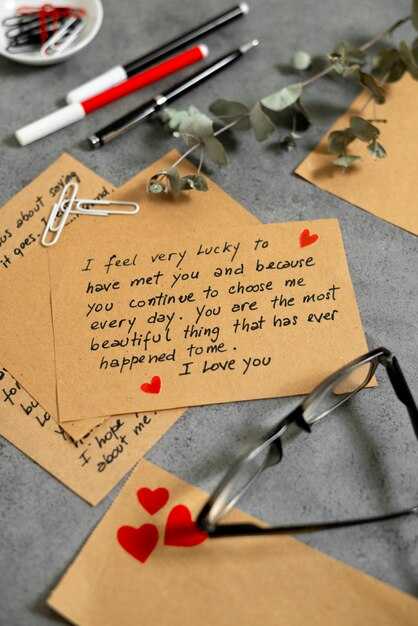 us about saying
it goes.
I feel very Lucky to
have met you and because
you continue to choose me
every day. You are the most
beautiful thing that has ever
happened to me.
I love you
for
by
Lo
I hope
about me